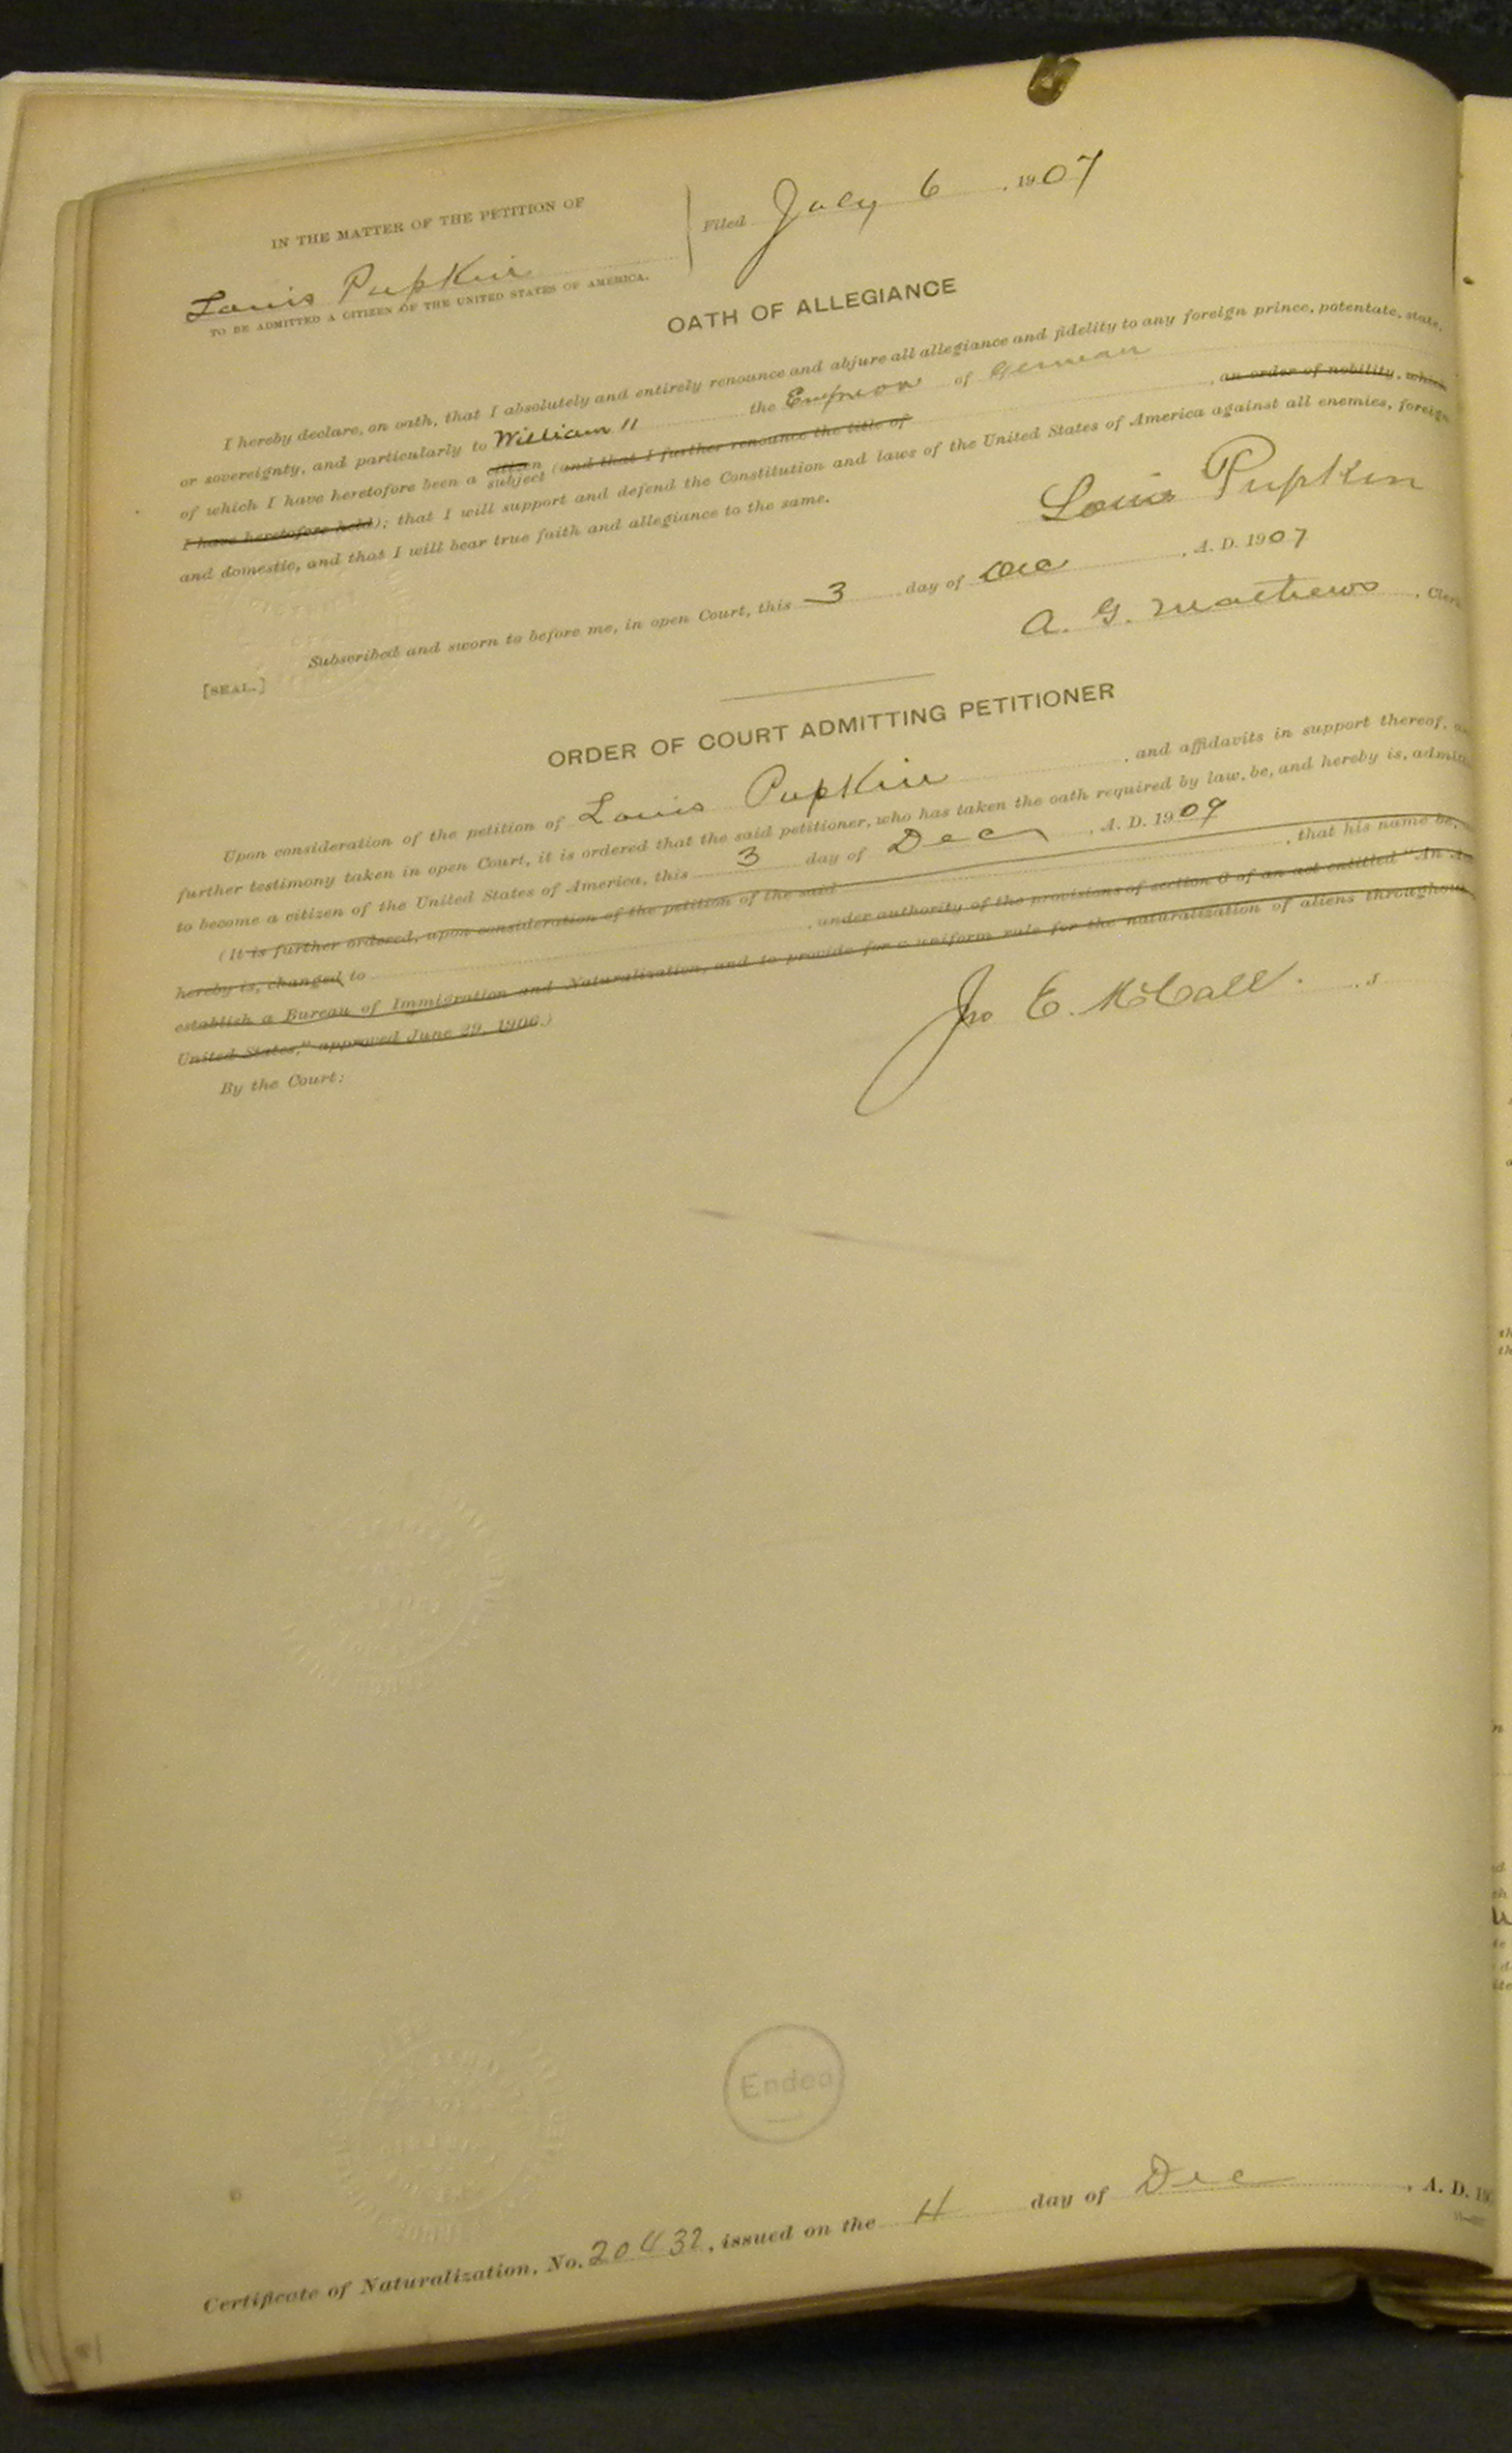 IN THE MATTER OF THE PETITION OF
Louis Pupkin
TO BE ADMITTED A CITIZEN OF THE UNITED STATES OF AMERICA.
Filed July 6, 1907
OATH OF ALLEGIANCE
I hereby declare, on oath, that I absolutely and entirely renounce and abjure all allegiance and fidelity to any foreign prince, potentate, state,
or sovereignty, and particularly to William II the Emperor of German
of which I have heretofore been a citizen subject (and that I further renounce the title of , an order of nobility, which
I have heretofore held); that I will support and defend the Constitution and laws of the United States of America against all enemies, foreign
and domestic, and that I will bear true faith and allegiance to the same.
Louis Pupkin
Subscribed and sworn to before me, in open Court, this 3 day of Dec, A. D. 1907
[SEAL.]
A. G. Mathews, Clerk
ORDER OF COURT ADMITTING PETITIONER
Upon consideration of the petition of Louis Pupkin, and affidavits in support thereof,
further testimony taken in open Court, it is ordered that the said petitioner, who has taken the oath required by law, be, and hereby is, admit
to become a citizen of the United States of America, this 3 day of Dec, A. D. 1909
(It is further ordered, upon consideration of the petition of the said , that his name be,
hereby is, changed to , under authority of the provisions of section 6 of an act entitled "An A
establish a Bureau of Immigration and Naturalization, and to provide for a uniform rule for the naturalization of aliens throughout
United States," approved June 29, 1906.)
By the Court:
Jno E. McCall.
Endea
Certificate of Naturalization, No. 20432, issued on the 4 day of Dec, A. D. 19